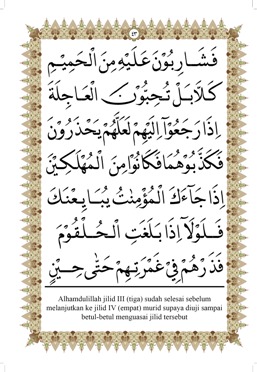 ٤٣
فَشَارِبُوْنَ عَلَيْهِ مِنَ الْحَمِيْمِ
كَلَّا بَلْ تُحِبُّوْنَ الْعَاجِلَةَ
اِذَا رَجَعُوْٓا اِلَيْهِمْ لَعَلَّهُمْ يَحْذَرُوْنَ
فَكَذَّبُوْهُمَا فَكَانُوْا مِنَ الْمُهْلَكِيْنَ
اِذَا جَآءَكَ الْمُؤْمِنٰتُ يُبَايِعْنَكَ
فَلَوْلَآ اِذَا بَلَغَتِ الْحُلْقُوْمَ
فَذَرْهُمْ فِيْ غَمْرَتِهِمْ حَتّٰى حِيْنٍ
Alhamdulillah jilid III (tiga) sudah selesai sebelum
melanjutkan ke jilid IV (empat) murid supaya diuji sampai
betul-betul menguasai jilid tersebut